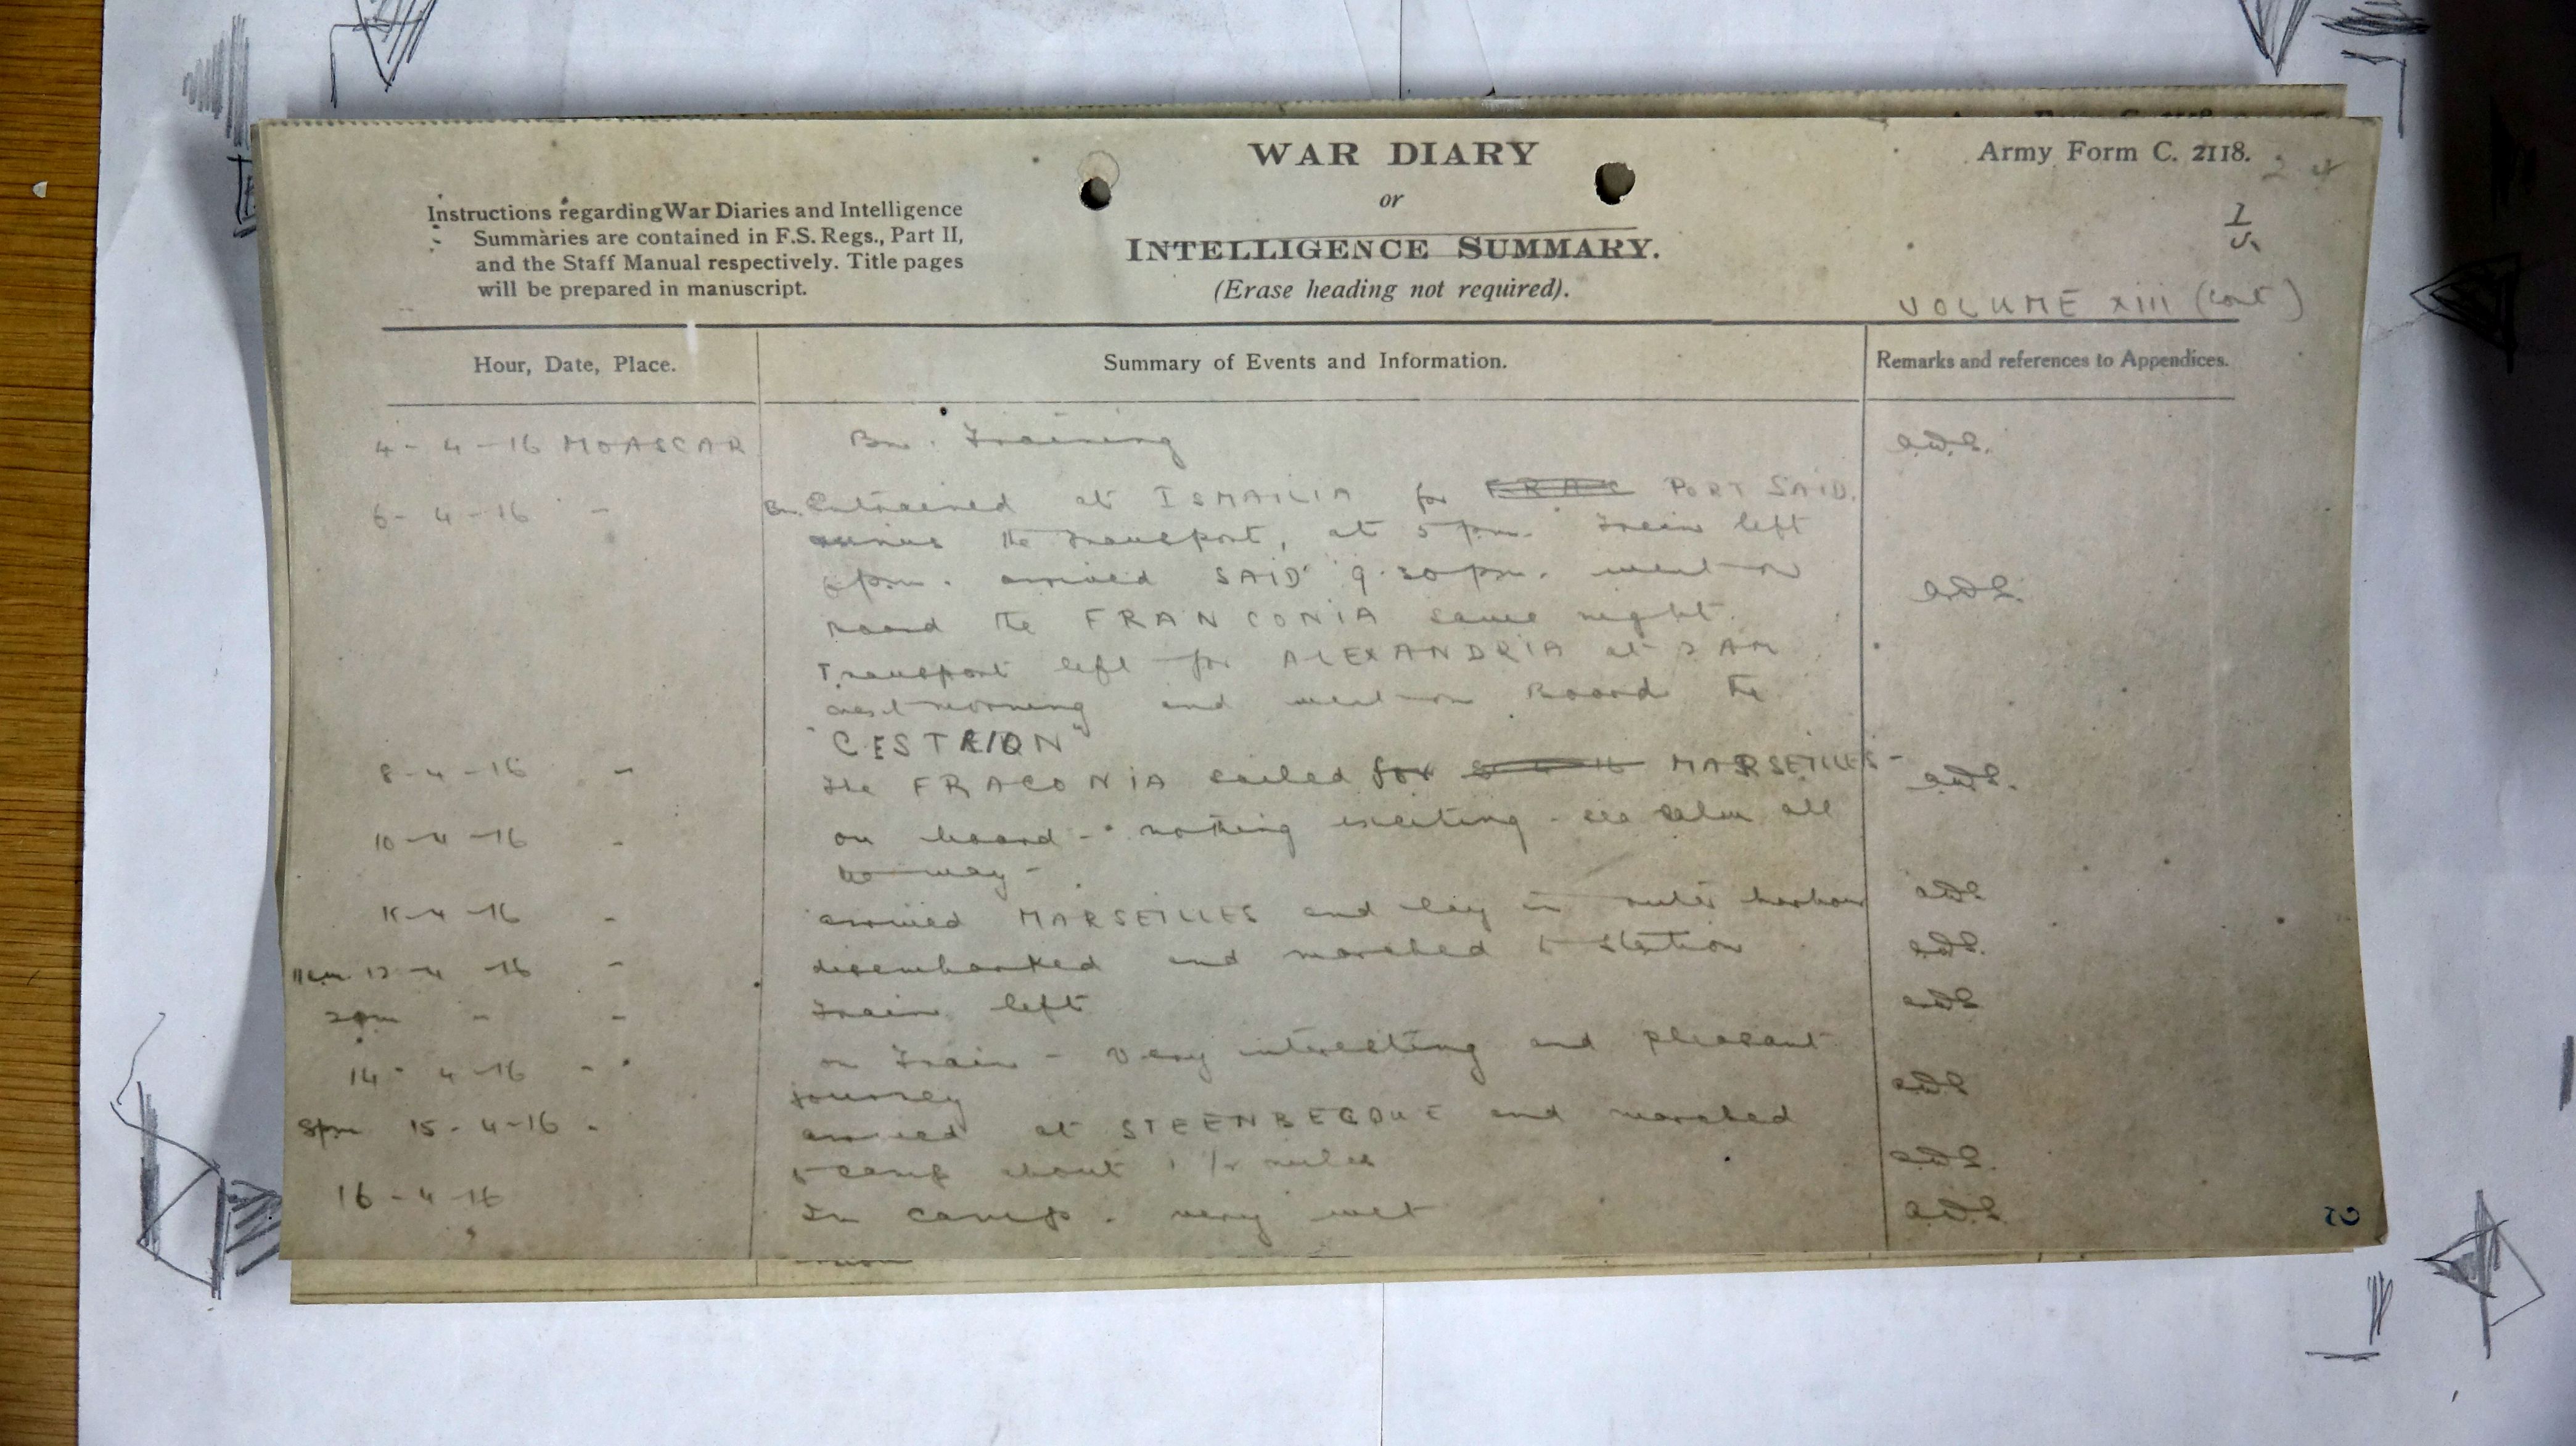 WAR DIARY
or
INTELLIGENCE SUMMARY.
(Erase heading not required).
Army Form C. 2118.
Instructions regarding War Diaries and Intelligence
Summaries are contained in F.S. Regs., Part II,
and the Staff Manual respectively. Title pages
will be prepared in manuscript.
VOLUME XIII (cont)
Hour, Date, Place.
Summary of Events and Information.
Remarks and references to Appendices.
4-4-16 MOASCAR Bn. Training
6-4-16 - Bn. Entrained at ISMAILIA for PORT SAID.
minus the Transport, at 5 pm. Train left
6pm. arrived SAID 9.30pm. went on
Board the FRANCONIA same night.
Transport left for ALEXANDRIA at 2 AM
next morning and went on Board the
"CESTRION"
8-4-16 - The FRACONIA sailed for MARSEILLES -
10-4-16 - on board - nothing exciting - sea calm all
the way -
- arrived MARSEILLES and lay in outer harbour
-4-16 - disembarked and marched to Station
2pm - - Train left
14-4-16 - - on Train - Very interesting and pleasant
journey
8pm 15-4-16 - arrived at STEENBECQUE and marched
to camp about 1 1/2 miles
16-4-16 In camp. very wet